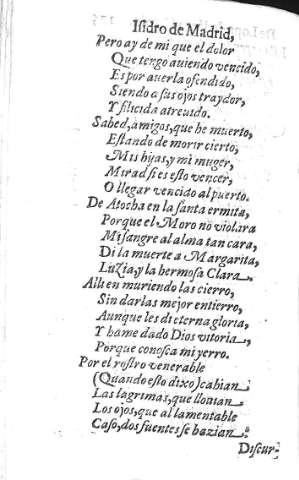 Isidro de Madrid,
Pero ay de mi que el dolor
Que tengo auiendo vencido,
Es por auerla ofendido,
Siendo a sus ojos traydor,
Y filicida atreuido.
Sabed, amigos, que he muerto,
Estando de morir cierto,
Mis hijas, y mi muger,
Mirad si es esto vencer,
O llegar vencido al puerto.
De Atocha en la santa ermita,
Porque el Moro no violara
Mi sangre al alma tan cara,
Di la muerte a Margarita,
Luzia, y la hermosa Clara.
Alli en muriendo las cierro,
Sin darlas mejor entierro,
Aunque les di eterna gloria,
Y hame dado Dios vitoria,
Porque conosca mi yerro.
Por el rostro venerable
(Quando esto dixo) cahian
Las lagrimas, que llouian
Los ojos, que al lamentable
Caso, dos fuentes se hazian.
Discur-